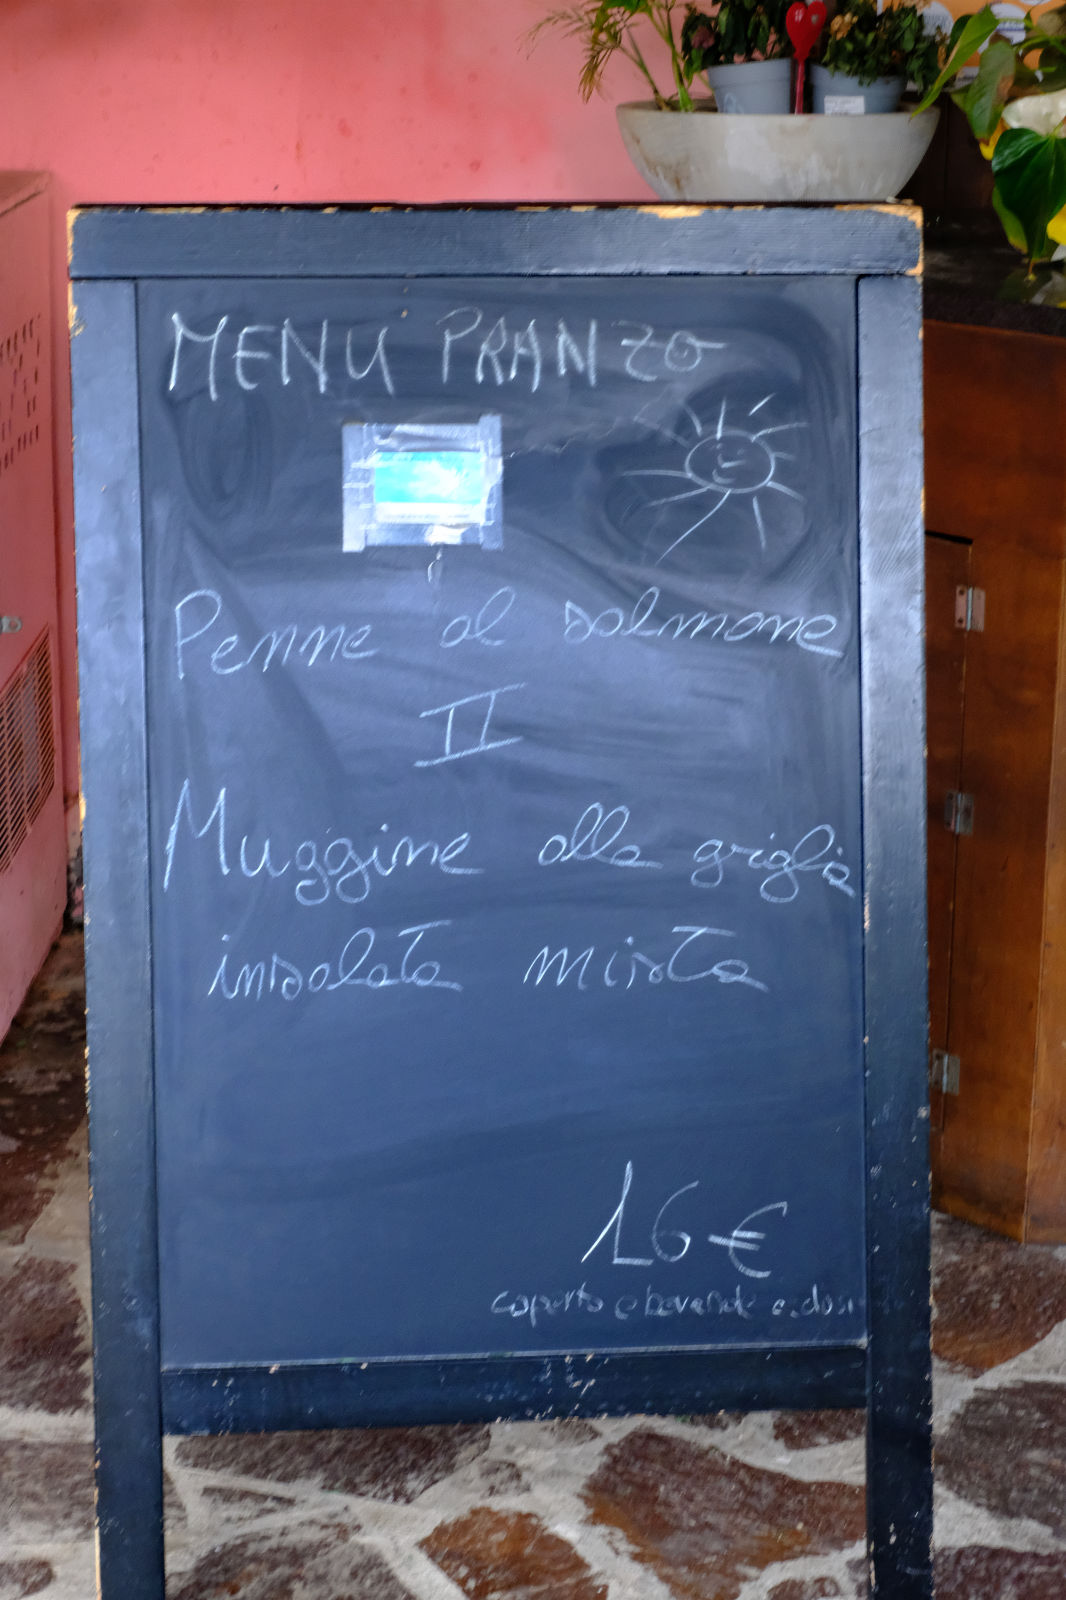 MENU PRANZO
Penne al salmone
II
Muggine alla griglia
insalata mista
16 €
coperto e bevande esclusi